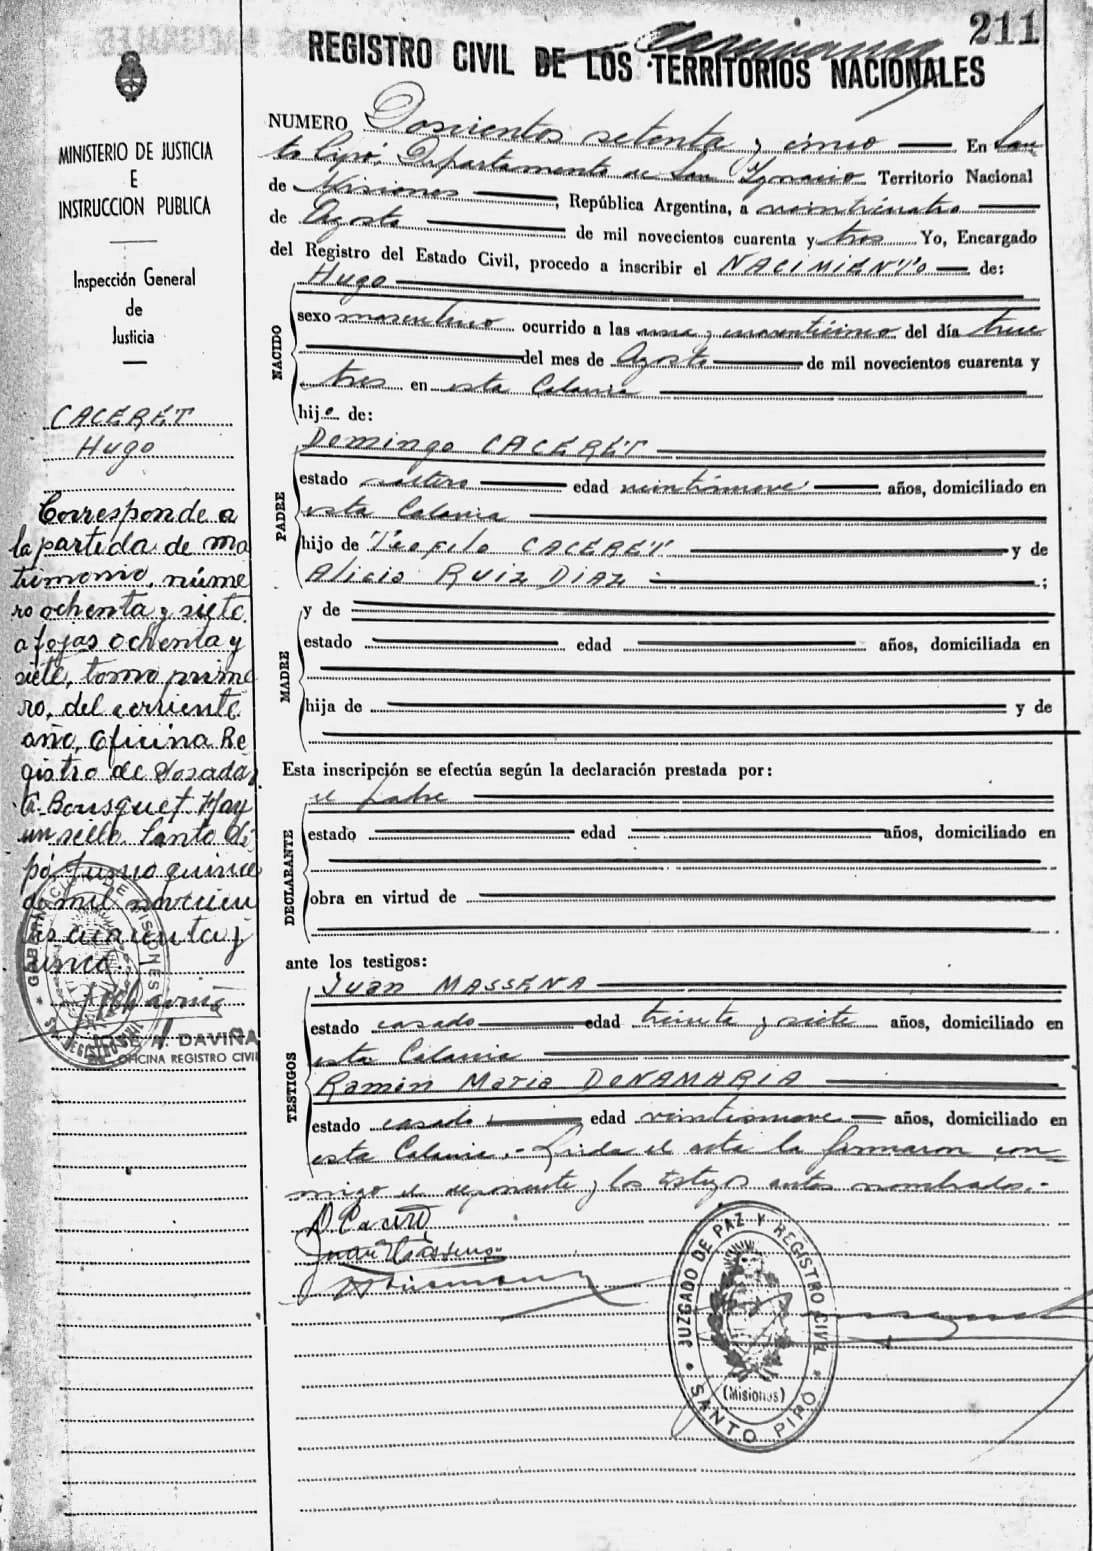 211
REGISTRO CIVIL DE LOS TERRITORIOS NACIONALES
MINISTERIO DE JUSTICIA
E
INSTRUCCION PUBLICA
Inspección General
de
Justicia
CACERET
Hugo
Corresponde a
la partida de ma
trimonio, núme
ro ochenta y siete
a fojas ochenta y
siete, tomo prime
ro, del corriente
año, Oficina Re
gistro de Posadas
Bousquet Hay
un sello. Santo Pi
pó Junio quince
de mil novecien
tos cincuenta y
cinco.
JOSE A. DAVIÑA
OFICINA REGISTRO CIVIL
NUMERO Doscientos setenta y cinco En San
to Pipó, Departamento de San Ignacio Territorio Nacional
de Misiones, República Argentina, a veinticuatro
de Agosto de mil novecientos cuarenta y tres Yo, Encargado
del Registro del Estado Civil, procedo a inscribir el NACIMIENTO de:
NACIDO
Hugo
sexo masculino ocurrido a las una y cuarenticinco del día trece
del mes de Agosto de mil novecientos cuarenta y
tres en esta Colonia
hijo de:
PADRE
Domingo CACERET
estado soltero edad veintinueve años, domiciliado en
esta Colonia
hijo de Teofilo CACERET y de
Alicia RUIZ DIAZ ;
MADRE
y de
estado edad años, domiciliada en
hija de y de
Esta inscripción se efectúa según la declaración prestada por:
DECLARANTE
el padre
estado edad años, domiciliado en
obra en virtud de
ante los testigos:
TESTIGOS
Juan MASSENA
estado casado edad treinta y siete años, domiciliado en
esta Colonia
Ramón Maria DONAMARIA
estado casado edad veintinueve años, domiciliado en
esta Colonia.- Leída el acta la firmaron con-
migo el deponente y los testigos antes nombrados.-
D. Caceret
Juan Massena
JUZGADO DE PAZ Y REGISTRO CIVIL
(Misiones)
SANTO PIPÓ